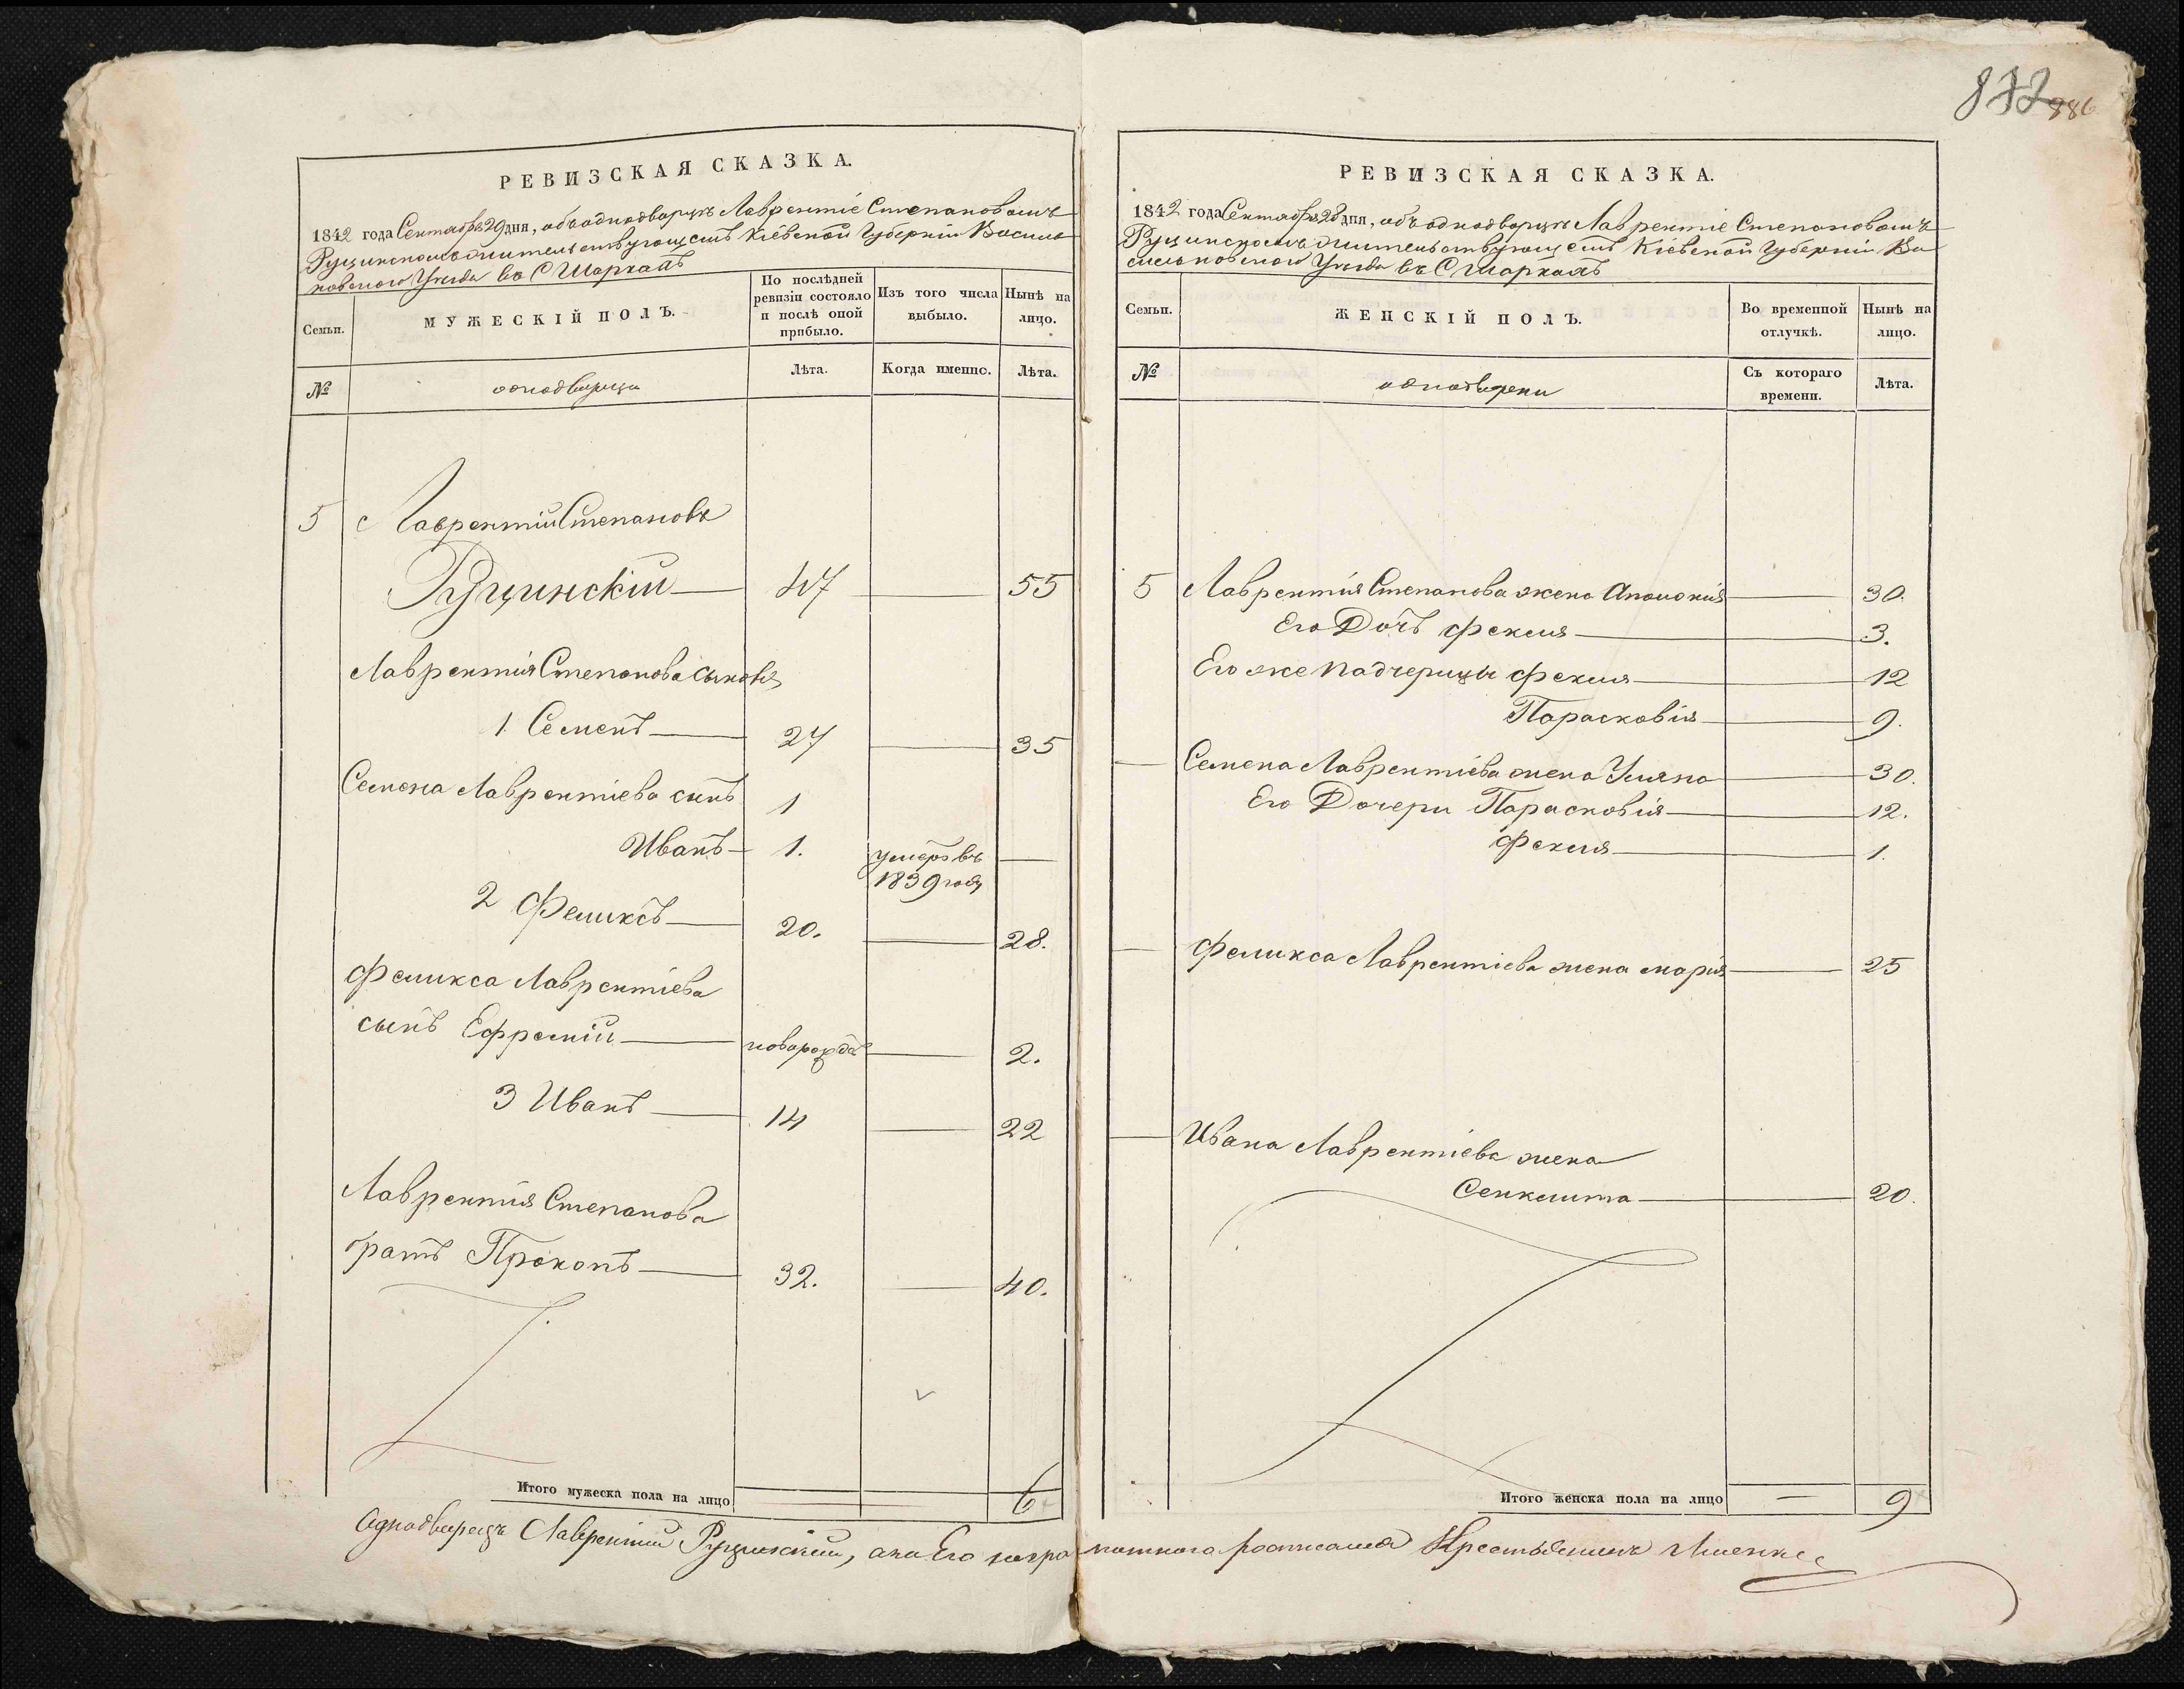 832 886
РЕВИЗСКАЯ СКАЗКА.
1842 года Сентября 29 дня, объ однодворцѣ Лаврентіе Степановомъ
Руцинскомъ жительствующемъ Кіевской Губерніи Василь
ковского Уѣзда въ С Шаркахъ
Семьи.
МУЖЕСКІЙ ПОЛЪ.
По послѣдней
ревизіи состояло
и послѣ оной
прибыло.
Изъ того числа
выбыло.
Нынѣ на
лицо.
№
однодворцы
Лѣта.
Когда именно.
Лѣта.
5 Лаврентій Степановъ
Руцинскій 47 55
Лаврентія Степанова сыновя
1 Семенъ 27 35
Семена Лаврентіева сынъ 1
Иванъ 1. умеръ въ
1839 году
2 Феликсъ 20. 28.
Феликса Лаврентіева
сынъ Ефремій новорожде 2.
3 Иванъ 14 22
Лаврентія Степанова
братъ Прокопъ 32. 40.
Итого мужеска пола на лицо 6
РЕВИЗСКАЯ СКАЗКА.
1842 года Сентября 28 дня, объ однодворцѣ Лаврентіе Степановомъ
Руцинскомъ жительствующемъ Кіевской Губерніи Ва
сильковского Уѣзда въ С Шаркахъ
Семьи.
ЖЕНСКІЙ ПОЛЪ.
Во временной
отлучкѣ.
Нынѣ на
лицо.
№
однодворки
Съ котораго
времени.
Лѣта.
5 Лаврентія Степанова жена Аполонія 30.
Его Дочъ Фекля 3.
Его же Падчерицы Фекля 12
Парасковія 9.
Семена Лаврентіева жена Уляна 30.
Его Дочери Парасковія 12.
Фекля 1.
Феликса Лаврентіева жена марія 25
Ивана Лаврентіева жена
Сенклита 20.
Итого женска пола на лицо 9
Однодворецъ Лаврентій Руцинскій, а на Его неграмотного росписался Крестьянинъ